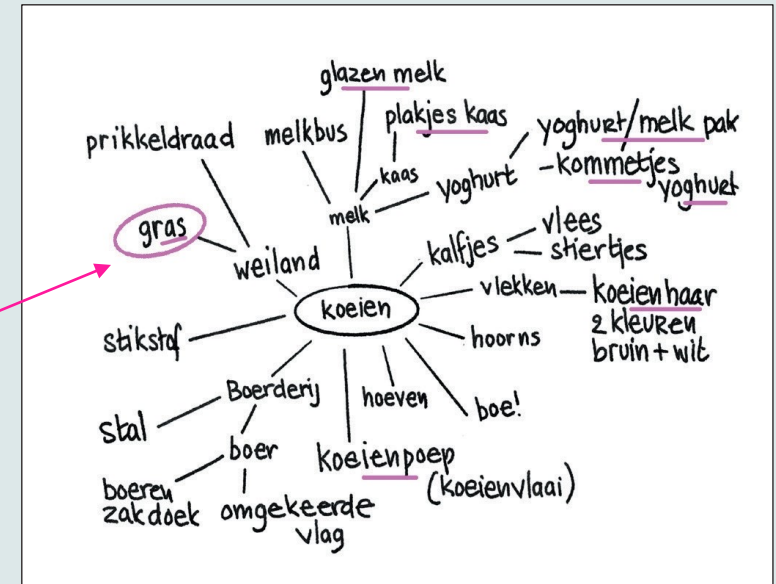 glazen melk
prikkeldraad
melkbus
plakjes kaas
yoghurt/melk pak
kaas
yoghurt
-kommetjes
yoghurt
gras
melk
weiland
kalfjes
vlees
stiertjes
koeien
vlekken
koeienhaar
2 kleuren
bruin+wit
stikstof
hoorns
Boerderij
hoeven
boe!
stal
boer
koeienpoep
(koeienvlaai)
boeren
zakdoek
omgekeerde
vlag